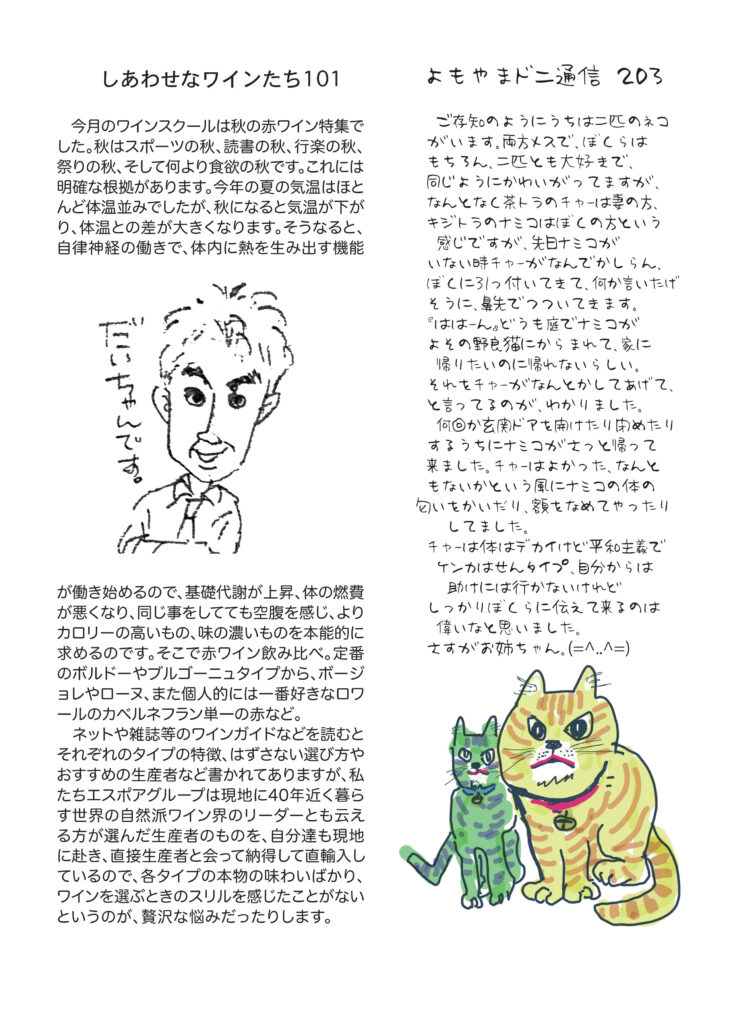 しあわせなワインたち101
今月のワインスクールは秋の赤ワイン特集で
した。秋はスポーツの秋、読書の秋、行楽の秋、
祭りの秋、そして何より食欲の秋です。これには
明確な根拠があります。今年の夏の気温はほと
んど体温並みでしたが、秋になると気温が下が
り、体温との差が大きくなります。そうなると、
自律神経の働きで、体内に熱を生み出す機能
だいちゃんです。
が働き始めるので、基礎代謝が上昇、体の燃費
が悪くなり、同じ事をしてても空腹を感じ、より
カロリーの高いもの、味の濃いものを本能的に
求めるのです。そこで赤ワイン飲み比べ。定番
のボルドーやブルゴーニュタイプから、ボージ
ョレやローヌ、また個人的には一番好きなロワ
ールのカベルネフラン単一の赤など。
ネットや雑誌等のワインガイドなどを読むと
それぞれのタイプの特徴、はずさない選び方や
おすすめの生産者など書かれてありますが、私
たちエスポアグループは現地に40年近く暮ら
す世界の自然派ワイン界のリーダーとも云え
る方が選んだ生産者のものを、自分達も現地
に赴き、直接生産者と会って納得して直輸入し
ているので、各タイプの本物の味わいばかり、
ワインを選ぶときのスリルを感じたことがない
というのが、贅沢な悩みだったりします。
よもやまドニ通信 203
ご存知のようにうちは二匹のネコ
がいます。両方メスで、ぼくらは
もちろん、二匹とも大好きで、
同じようにかわいがってますが、
なんとなく茶トラのチャーは妻の方、
キジトラのナミコはぼくの方という
感じですが、先日ナミコが
いない時チャーがなんでかしらん、
ぼくに引っ付いてきて、何か言いたげ
そうに、鼻先でつついてきます。
『ははーん』どうも庭でナミコが
よその野良猫にからまれて、家に
帰りたいのに帰れないらしい。
それをチャーがなんとかしてあげて、
と言ってるのが、わかりました。
何回か玄関ドアを開けたり閉めたり
するうちにナミコがさっと帰って
来ました。チャーはよかった、なんと
もないかという風にナミコの体の
匂いをかいだり、額をなめてやったり
してました。
チャーは体はデカイけど平和主義で
ケンカはせんタイプ、自分からは
助けには行かないけれど
しっかりぼくらに伝えて来るのは
偉いなと思いました。
さすがお姉ちゃん。(=^..^=)